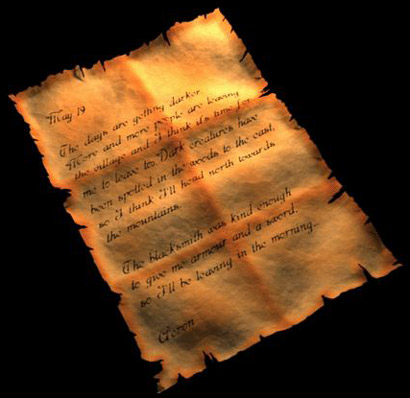 May 19
The days are getting darker.
More and more people are leaving
the village and I think it's time for
me to leave too. Dark creatures have
been spotted in the woods to the east,
so I think I'll head north towards
the mountains.
The blacksmith was kind enough
to give me armour and a sword,
so I'll be leaving in the morning...